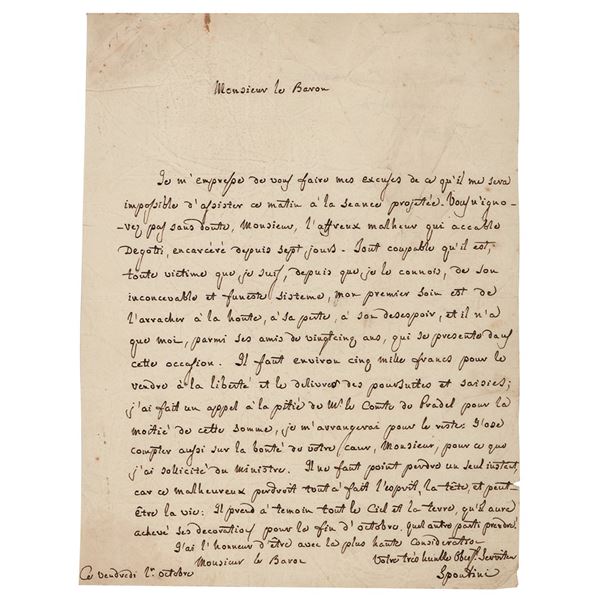 Monsieur le Baron
Je m'empresse de vous faire mes excuses de ce qu'il me sera
impossible d'assister ce matin à la séance projetée. Vous n'igno-
-rez pas sans doute, Monsieur, l'affreux malheur qui accable
Degotti, encarcéré depuis sept jours. Tout coupable qu'il est,
toute victime que je suis, depuis que je le connois, de son
inconcevable et funeste sisteme, mon premier soin est de
l'arracher à la honte, à sa perte, à son desespoir, et il n'a
que moi, parmi ses amis de vingtcinq ans, qui se presente dans
cette occasion. Il faut environ cinq mille francs pour le
rendre à la liberté et le delivrer des poursuites et saisies;
j'ai fait un appel à la pitié de Mr. le Comte de Pradel pour la
moitié de cette somme, je m'arrangerai pour le reste. J'ose
compter aussi sur la bonté de votre cœur, Monsieur, pour ce que
j'ai sollicité du Ministre. Il ne faut point perdre un seul instant,
car ce malheureux perdroit tout à fait l'esprit, la tête, et peut
être la vie: Il prend à temoin tout le Ciel et la terre, qu'il aura
achevé ses decorations pour la fin d'octobre. quel autre parti prendre.
J'ai l'honneur d'être avec la plus haute consideration
Monsieur le Baron
Votre très humble Obéist. Serviteur
Ce vendredi 1er octobre
Spontini